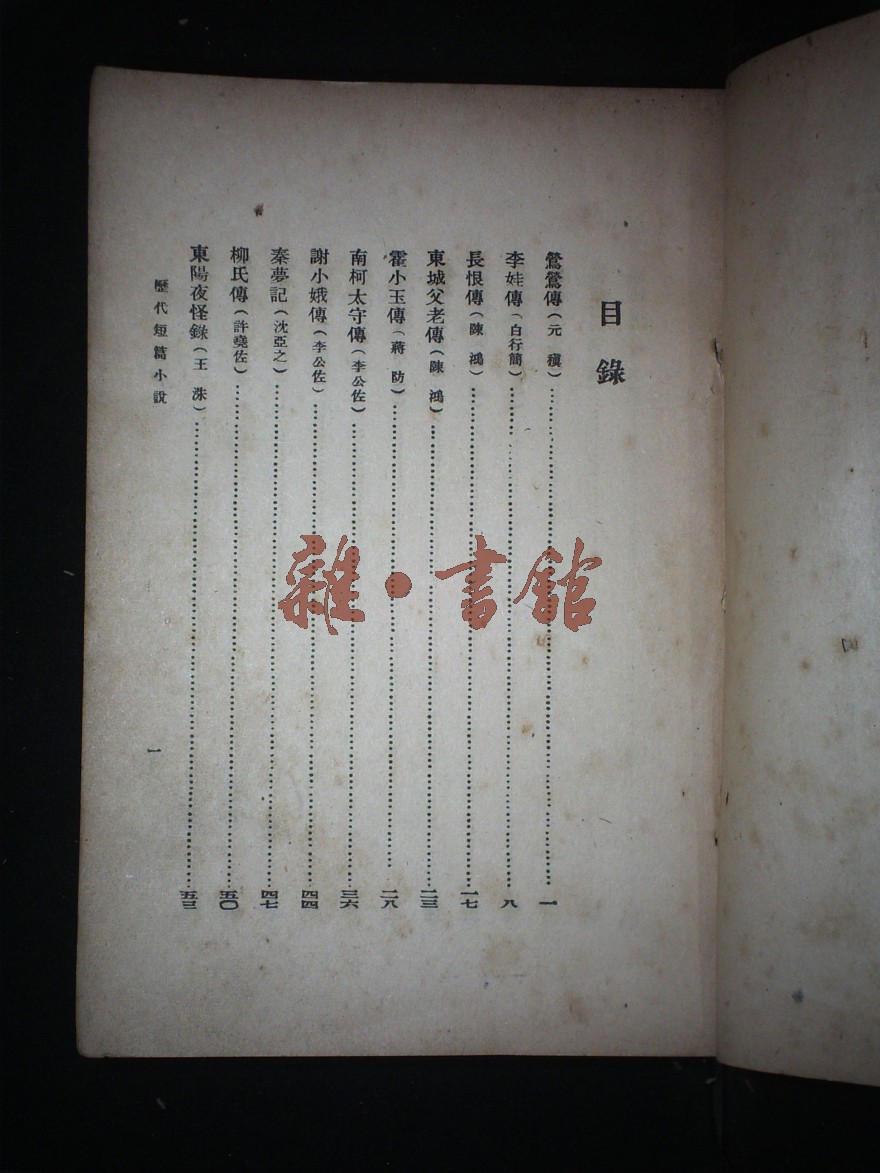 目錄
鶯鶯傳（元稹）……一
李娃傳（白行簡）……八
長恨傳（陳鴻）……一七
東城父老傳（陳鴻）……二三
霍小玉傳（蔣防）……二八
南柯太守傳（李公佐）……三六
謝小娥傳（李公佐）……四四
秦夢記（沈亞之）……四七
柳氏傳（許堯佐）……五〇
東陽夜怪錄（王洙）……五三
歷代短篇小說
一
雜·書館